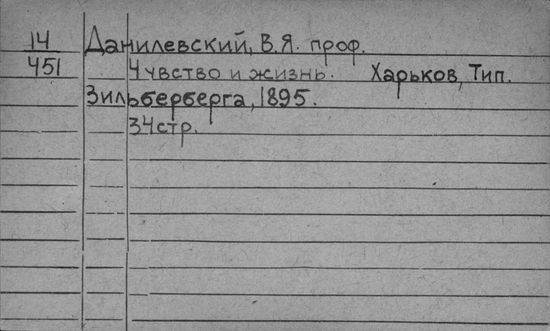 14 Данилевский, В.Я. проф.
451 Чувство и жизнь. Харьков, Тип.
Зильберберга, 1895.
34 стр.